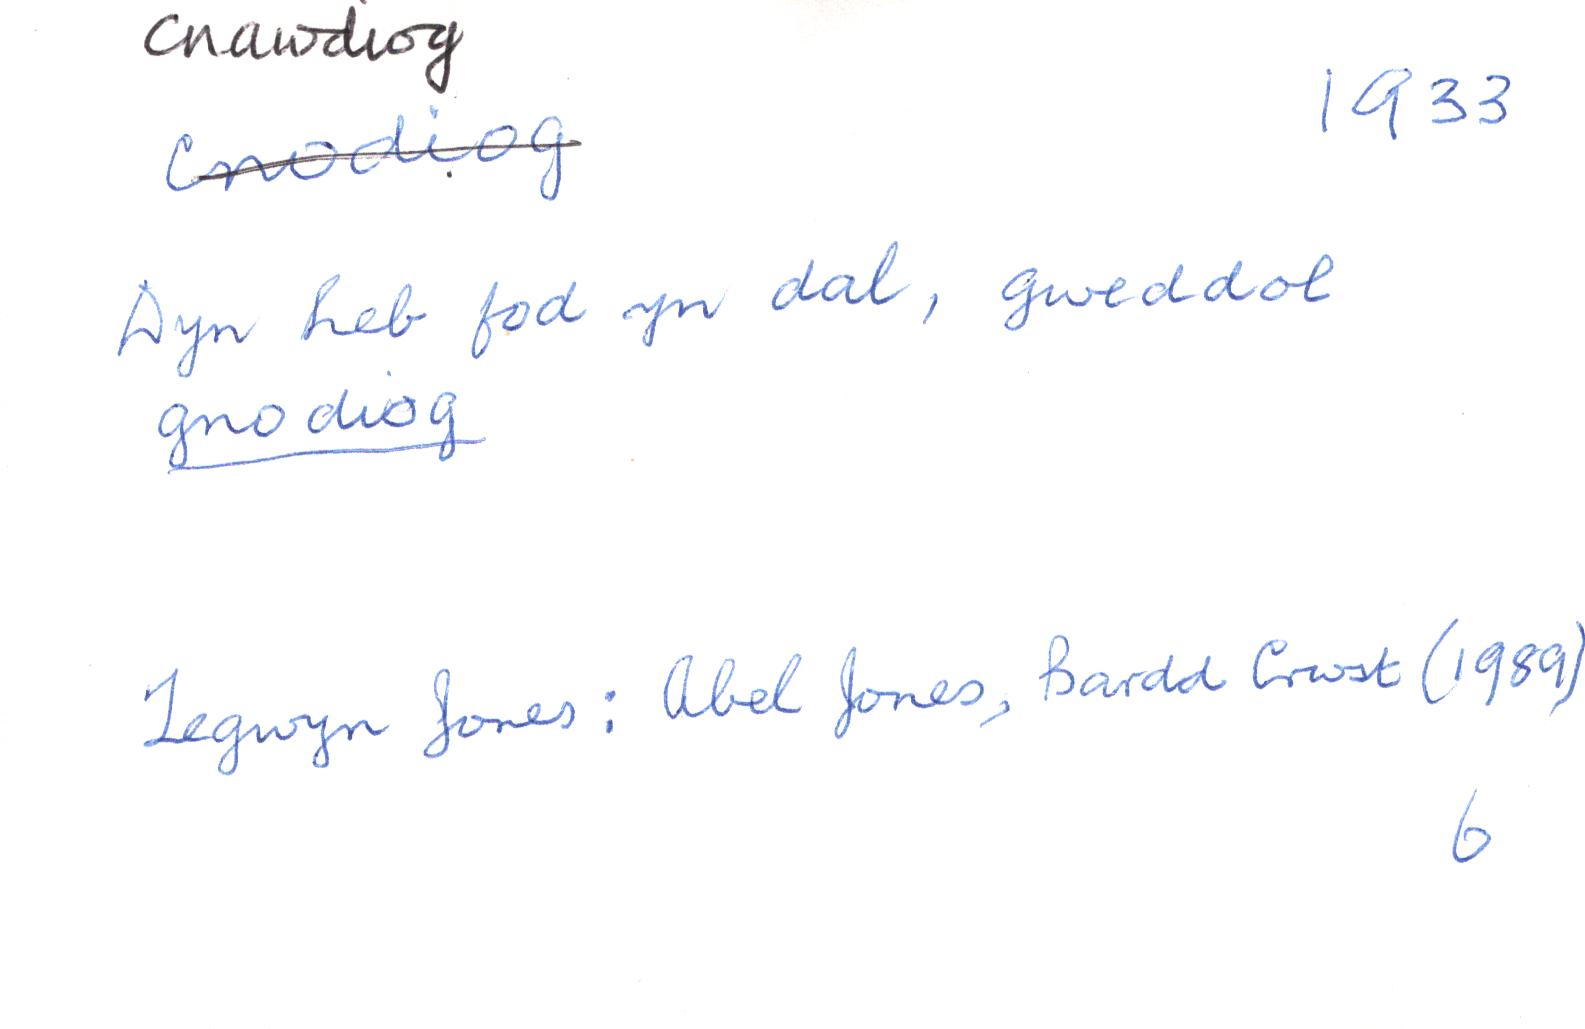 cnawdiog
1933
cnodiog
Dyn heb fod yn dal, gweddol
gnodiog
Tegwyn Jones: Abel Jones, Bardd Crwst (1989)
6